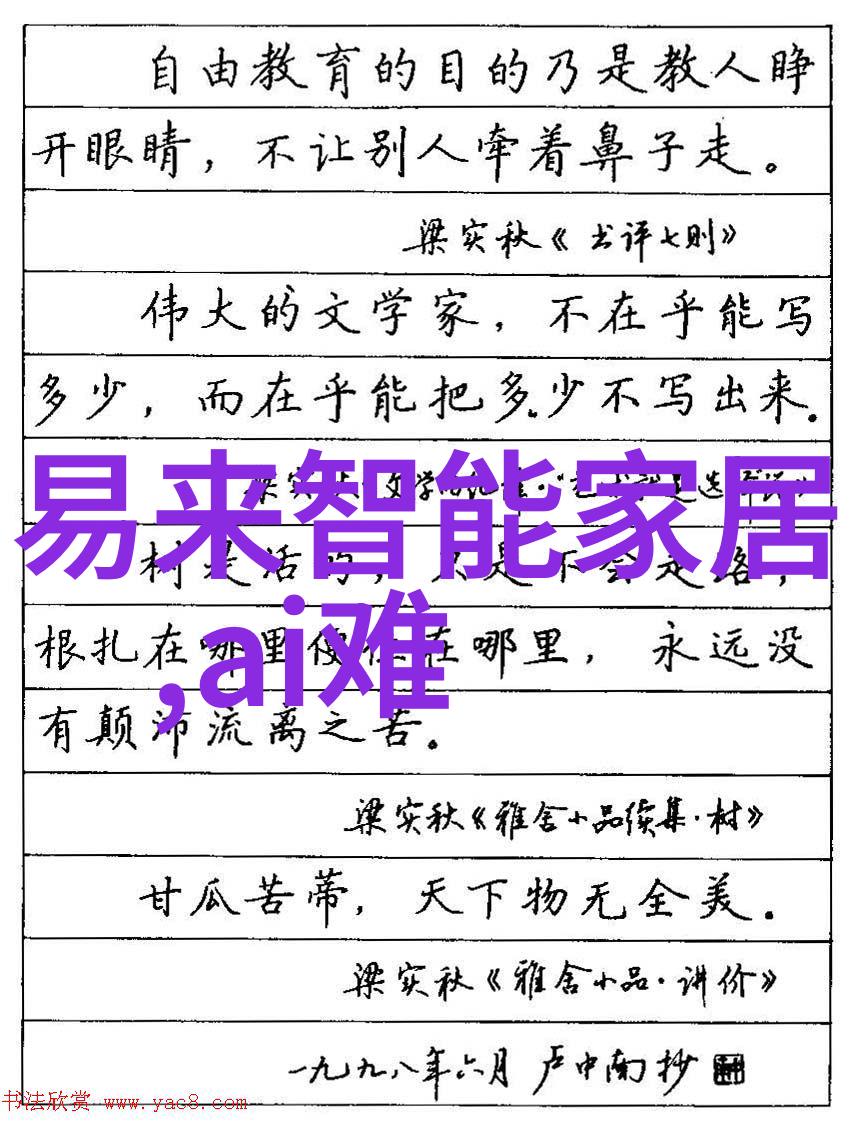 自由教育的目的乃是教人睁
开眼睛，不让别人牵着鼻子走。
梁实秋《书评七则》
伟大的文学家，不在乎能写
多少，而在乎能把多少不写出来。
易来智能家居
树是活的，只是不会走路，
,ai难
根扎在哪里便住在哪里，永远没
有颠沛流离之苦。
梁实秋《雅舍小品续集·树》
甘瓜苦蒂，天下物无全美。
梁实秋《雅舍小品·讲价》
一九九八年六月 卢中南抄
书法欣赏 www.yac8.com